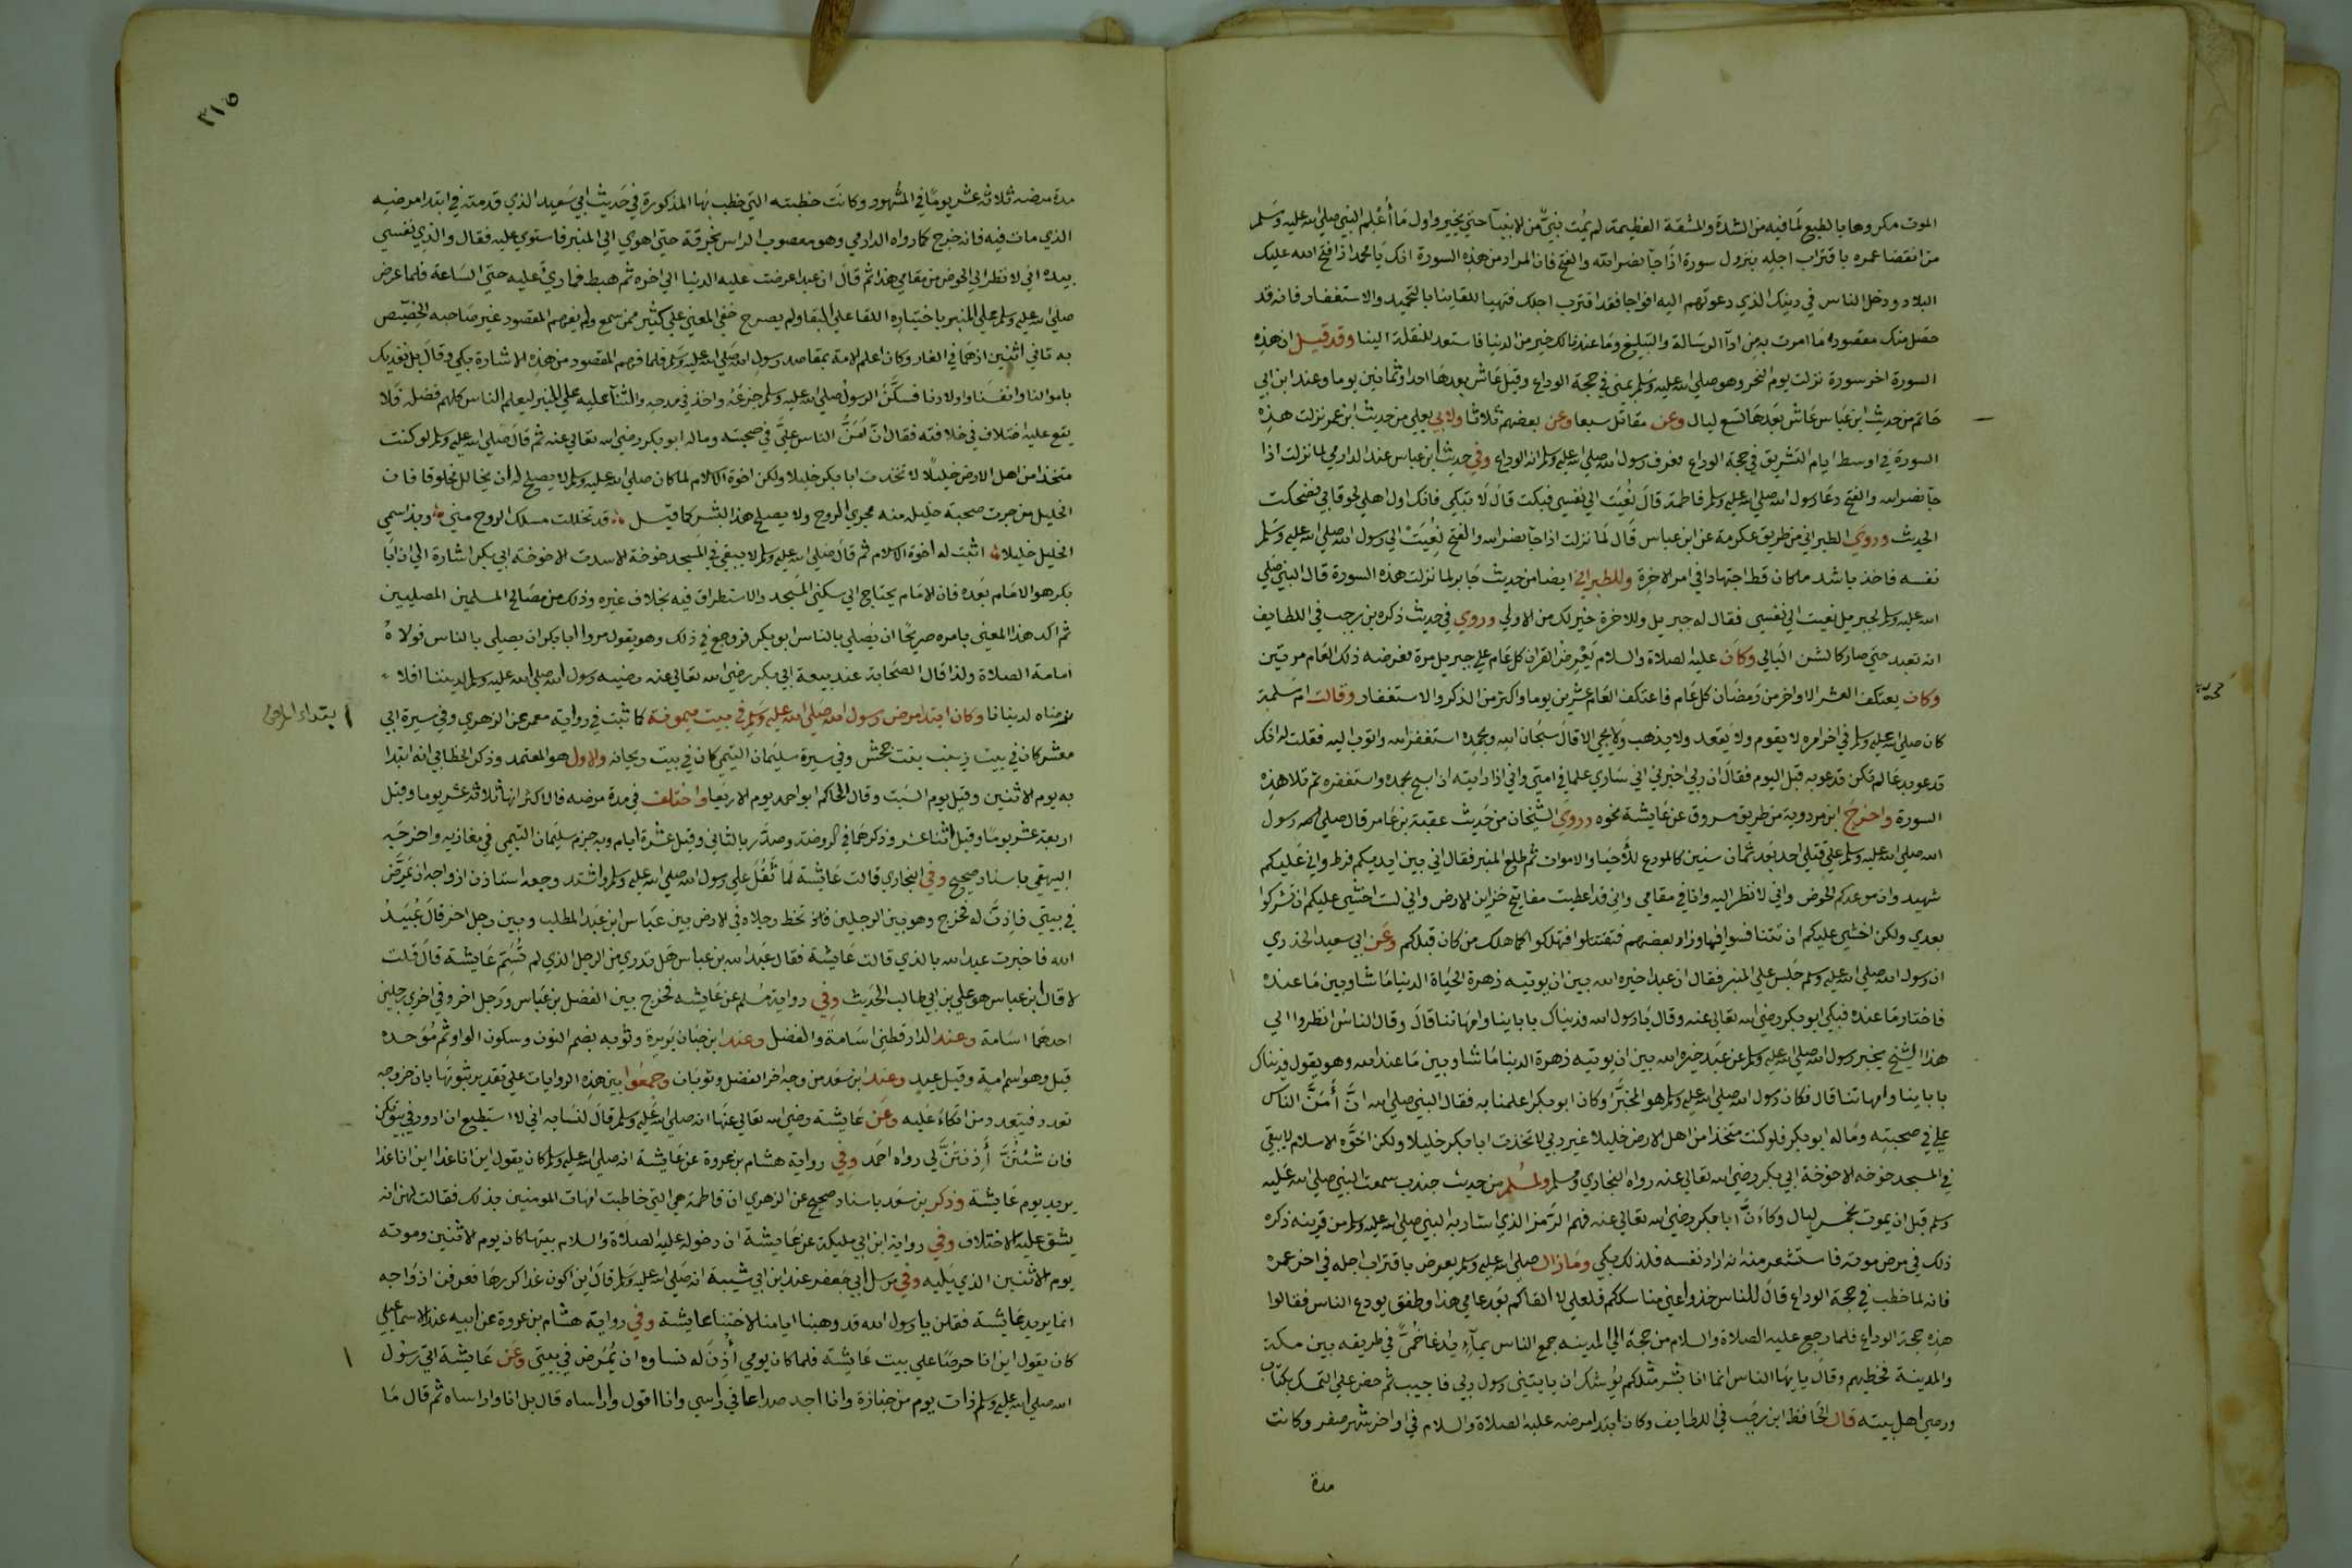 الموت مكروها بالطبع لما فيه من الشدة والمشقة العظيمة لم يمت نبي من الانبيآ حتي يخير واول ما أعلم النبي صلي الله عليه وسلم
من انقضا عمره باقتراب اجله بنزول سورة اذا جآ نصر الله والفتح فان المراد من هذه السورة انك يا محمد اذا فتح الله عليك
البلاد ودخل الناس في دينك الذي دعوتهم اليه افواجا فقد اقترب اجلك فتهيا للقاينا بالتحميد والاستغفار فانه قد
حصل منك مقصود ما امرت به من ادآ الرسالة والتبليغ وما عندنا لك خير من الدنيا فاستعد للنقلة الينا وقد قيل ان هذه
السورة اخر سورة نزلت يوم النحر وهو صلي الله عليه وسلم بمني في حجة الوداع وقيل عاش بعدها احدا وثمانين يوما وعند ابن ابي
حاتم من حديث ابن عباس عاش بعدها تسع ليال وعن مقاتل سبعا وعن بعضهم ثلاثا ولابي يعلي من حديث ابن عمر نزلت هذه
السورة في اوسط ايام التشريق في حجة الوداع فعرف رسول الله صلي الله عليه وسلم انه الوداع وفي حديث ابن عباس عند الدارمي لما نزلت اذا
جآ نصر الله والفتح دعا رسول الله صلي الله عليه وسلم فاطمة قال نعيت الي نفسي فبكت قال لا تبكي فانك اول اهلي لحوقا بي فضحكت
الحديث وروي الطبراني من طريق عكرمة عن ابن عباس قال لما نزلت اذا جآ نصر الله والفتح نعيت الي رسول الله صلي الله عليه وسلم
نفسه فاخذ باشد ما كان قط اجتهادا في امر الاخرة وللطبراني ايضا من حديث جابر لما نزلت هذه السورة قال النبي صلي
الله عليه وسلم لجبريل نعيت الي نفسي فقال له جبريل وللاخرة خير لك من الاولي وروي في حديث ذكره بن رجب في اللطايف
انه تعبد حتي صار كالشن البالي وكان عليه الصلاة والسلام يعرض القران كل عام علي جبريل مرة فعرضه ذلك العام مرتين
وكان يعتكف العشر الاواخر من رمضان كل عام فاعتكف العام عشرين يوما واكثر من الذكر والاستغفار وقالت ام سلمة
كان صلي الله عليه وسلم في اخر امره لا يقوم ولا يقعد ولا يذهب ولا يجي الا قال سبحان الله وبحمده استغفر الله واتوب اليه فقلت له انك
تدعو بدعا لم تكن تدعو به قبل اليوم فقال ان ربي اخبرني اني ساري علما في امتي واني اذا رايته ان اسبح بحمده واستغفره ثم تلا هذه
السورة واخرج ابن مردوية من طريق مسروق عن عايشة نحوه وروي الشيخان من حديث عقبة بن عامر قال صلي رسول
الله صلي الله عليه وسلم علي قتلي احد بعد ثمان سنين كالمودع للأحيا والاموات ثم طلع المنبر فقال اني بين ايديكم فرط واني عليكم
شهيد وان موعدكم الحوض واني لانظر اليه وانا في مقامي واني قد اعطيت مفاتيح خزاين الارض واني لست اخشي عليكم ان تشركوا
بعدي ولكن اخشي عليكم ان تتنافسوا فيها وزاد بعضهم فتقتتلوا فتهلكوا كما هلك من كان قبلكم وعن ابي سعيد الخدري
ان رسول الله صلي الله عليه وسلم جلس علي المنبر فقال ان عبدا خيره الله بين ان يوتيه زهرة الحياة الدنيا ما شا وبين ما عنده
فاختار ما عنده فبكي ابو بكر رضي الله تعالي عنه وقال يا رسول الله فديناك باباينا وامهاتنا قال وقال الناس انظروا الي
هذا الشيخ يخبر رسول الله صلي الله عليه وسلم عن عبد خيره الله بين ان يوتيه زهرة الدنيا ما شا وبين ما عند الله وهو يقول فديناك
باباينا وامهاتنا قال فكان رسول الله صلي الله عليه وسلم هو المخيَّر وكان ابو بكر اعلمنا به فقال النبي صلي الله انَّ أَمَنَّ الناس
علي في صحبته وماله ابو بكر فلو كنت متخذا من اهل الارض خليلا غير ربي لاتخذت ابا بكر خليلا ولكن اخوة الاسلام لا يبقي
في المسجد خوخه الا خوخة ابي بكر رضي الله تعالي عنه رواه البخاري ومسلم ولمسلم من حديث جندب سمعت النبي صلي الله عليه
وسلم قبل ان يموت بخمس ليال وكاءنَّ ابا بكر رضي الله تعالي عنه فهم الرمز الذي اشار به النبي صلي الله عليه وسلم من قرينه ذكره
ذلك في مرض موته فاستشعر منه انه اراد نفسه فلذلك بكي وما زال صلي الله عليه وسلم يعرض باقتراب اجله في اخر عمره
فانه لما خطب في حجة الوداع قال للناس خذوا عني مناسككم فلعلي لا القاكم بعد عامي هذا وطفق يودع الناس فقالوا
هذه حجة الوداع فلما رجع عليه الصلاة والسلام من حجة الي المدينه جمع الناس بمآء يدعا خما في طريقه بين مكة
والمدينة فخطبهم وقال يا يها الناس انما انا بشر مثلكم يوشك ان ياتيني رسول ربي فاجيب ثم حض علي التمسك بكتاب
ووصي اهل بيته قال الحافظ ابن رجب في اللطايف وكان ابتدا مرضه عليه الصلاة والسلام في اواخر شهر صفر وكانت
مدة
٣١٥
مدة مرضه ثلاثة عشر يوما في المشهور وكانت خطبته التي خطب بها المذكورة في حديث ابي سعيد الذي قدمته في ابتدا مرضه
الذي مات فيه فانه خرج كما رواه الدارمي وهو معصوب الراس بخرقة حتي اهوي الي المنبر فاستوي عليه فقال والذي نفسي
بيده اني لانظر الي الحوض من مقامي هذا ثم قال ان عبدا عرضت عليه الدنيا الي اخره ثم هبط فما رؤي عليه حتي الساعة فلما عرض
صلي الله عليه وسلم علي المنبر باختياره اللقا علي البقا ولم يصرح خفي المعني علي كثير ممن سمع ولم يفهم المقصود غير صاحبه الخصيص
به ثاني اثنين اذهما في الغار وكان اعلم الامة بمقاصد رسول الله صلي الله عليه وسلم فلما فهم المقصود من هذه الاشارة بكي وقال بل نفديك
باموالنا وانفسنا واولادنا فسكَّن الرسول صلي الله عليه وسلم جزعه واخذ في مدحه والثنآ عليه علي المنبر ليعلم الناس كلهم فضله فلا
يقع عليه اختلاف في خلافته فقال انّ أَمَنَّ الناس عليَّ في صحبته وماله ابو بكر رضي الله تعالي عنه ثم قال صلي الله عليه وسلم لو كنت
متخذا من اهل الارض خليلًا لاتخذت ابا بكر خليلا ولكن اخوة الاسلام لما كان صلي الله عليه وسلم لا يصلح له أن يخالل مخلوقا فان
الخليل من جرت صحبة خليله منه مجري الروح ولا يصلح هذا البشر كما قيل قد تخللت مسلك الروح مني وبذا سمي
الخليل خليلا اثبت له اخوة الاسلام ثم قال صلي الله عليه وسلم لا يبقي في المسجد خوخة الا سدت الا خوخة ابي بكر اشارة الي ان ابا
بكر هو الامام بعده فان الامام يحتاج الي سكني المسجد والاستطراق فيه بخلاف غيره وذلك من مصالح المسلمين المصليين
ثم اكد هذا المعني بامره صريحًا ان يصلي بالناس ابو بكر فروجع في ذلك وهو يقول مروا ابا بكر ان يصلي بالناس فولاهُ
امامة الصلاة ولذا قال الصحابة عند بيعة ابي بكر رضي الله تعالي عنه رضيه رسول الله صلي الله عليه وسلم لديننا افلا
نرضاه لدنيانا وكان ابتدا مرض رسول الله صلي الله عليه وسلم في بيت ميمونة كما ثبت في رواية معمر عن الزهري وفي سيرة ابي
ابتداء المرض
معشر كان في بيت زينب بنت جحش وفي سيرة سليمان التيمي كان في بيت ريحانه والاول هو المعتمد وذكر الخطابي انه ابتدا
به يوم الاثنين وقيل يوم السبت وقال الحاكم ابو احمد يوم الاربعا واختلف في مدة مرضه فالاكثر انها ثلاثة عشر يوما وقيل
اربعة عشر يوما وقيل اثنا عشر وذكرهما في الروضة وصدَّر بالثاني وقيل عشرة ايام وبه جزم سليمان التيمي في مغازيه واخرجه
البيهقي باسناد صحيح وفي البخاري قالت عايشة لما ثقُل علي رسول الله صلي الله عليه وسلم واشتد وجعه استاذن ازواجه ان يمرَّض
في بيتي فاذنَّ له فخرج وهو بين الرجلين تخط رجلاه في الارض بين عباس ابن عبد المطلب وبين رجل اخر قال عُبَيدُ
الله فاخبرت عبد الله بالذي قالت عايشة فقال عبد الله بن عباس هل تدري من الرجل الذي لم تُسَمِّ عايشة قال قلت
لا قال ابن عباس هو علي بن ابي طالب الحديث وفي رواية مسلم عن عايشه فخرج بين الفضل بن عباس ورجل اخر وفي اخري رجلين
احدهما اسامة وعند الدارقطني اسامة والفضل وعند ابن حبان بريرة ونُوبه بضم النون وسكون الواو ثم مُوَحده
قيل وهو اسم امة وقيل عبد وعند ابن سعد من وجه اخر الفضل وثوبان وجمعوا بين هذه الروايات علي تقدير ثبوتها بان خروجه
تعدد فيتعدد من اتكاء عليه وعن عايشة رضي الله تعالي عنها انه صلي الله عليه وسلم قال لنسايه اني لا استطيع ان ادور في بيوتكن
فان شئتُنَّ أَذنتنَّ لي رواه احمد وفي رواية هشام بن عروة عن عايشة انه صلي الله عليه وسلم كان يقول اين انا غدا اين انا غدا
يريد يوم عايشة وذكر بن سعد باسناد صحيح عن الزهري ان فاطمة هي التي خاطبت امهات المومنين بذلك فقالت لهن انه
يشق عليه الاختلاف وفي رواية ابن ابي مليكة عن عايشة ان دخوله عليه الصلاة والسلام بيتها كان يوم الاثنين وموته
يوم الاثنين الذي يليه وفي مرسل ابي جعفر عند ابن ابي شيبة انه صلي الله عليه وسلم قال اين اكون غدا كررها فعرفن ازواجه
انما يريد عايشة فقلن يا رسول الله قد وهبنا ايامنا لاختنا عايشة وفي رواية هشام بن عروة عن ابيه عند الاسماعيلي
كان يقول اين انا حرصًا علي بيت عايشة فلما كان يومي أَذِنَ له نساوه ان يُمَرض في بيتي وعن عايشة اتي رسول
الله صلي الله عليه وسلم ذات يوم من جنازة وانا اجد صداعا في راسي وانا اقول واراساه قال بل انا واراساه ثم قال ما